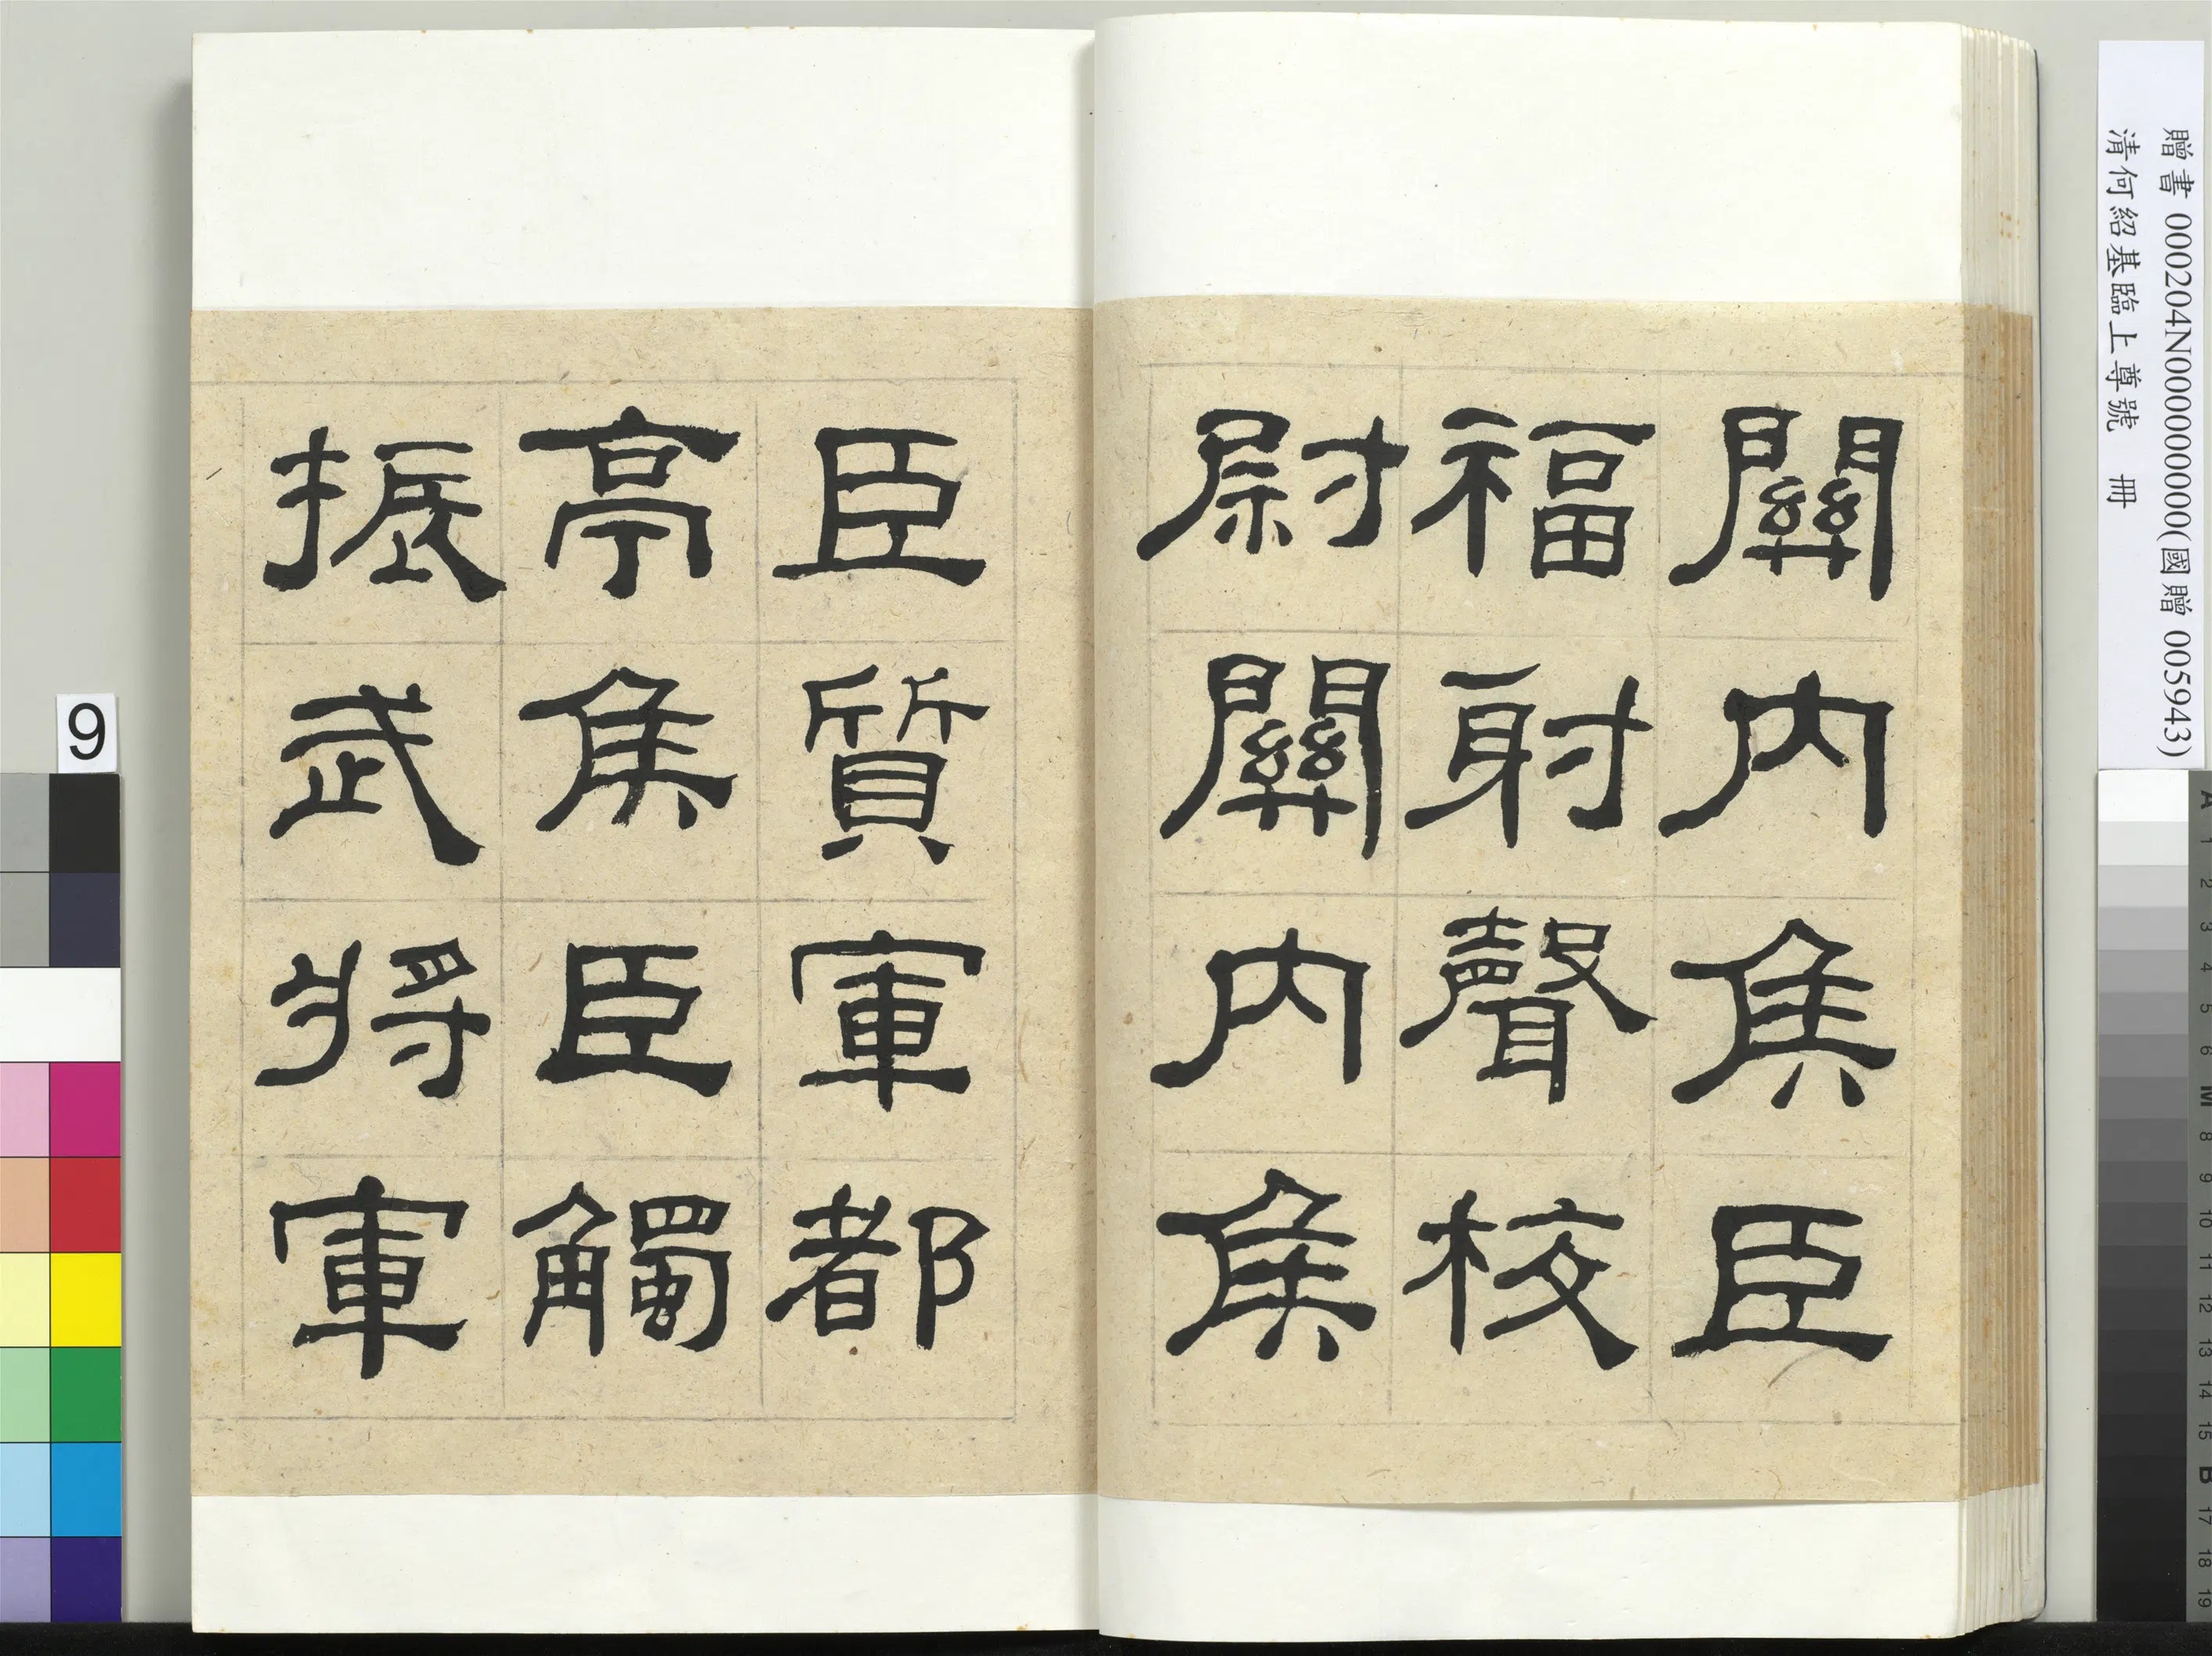 關內矦臣
福射聲校
尉關內矦
臣質軍都
亭矦臣觸
振武將軍
贈書 000204N000000000(國贈 005943)
清何紹基臨上尊號 冊
9
A 1 2 3 4 5 6 M 8 9 10 11 12 13 14 15 B 17 18 19